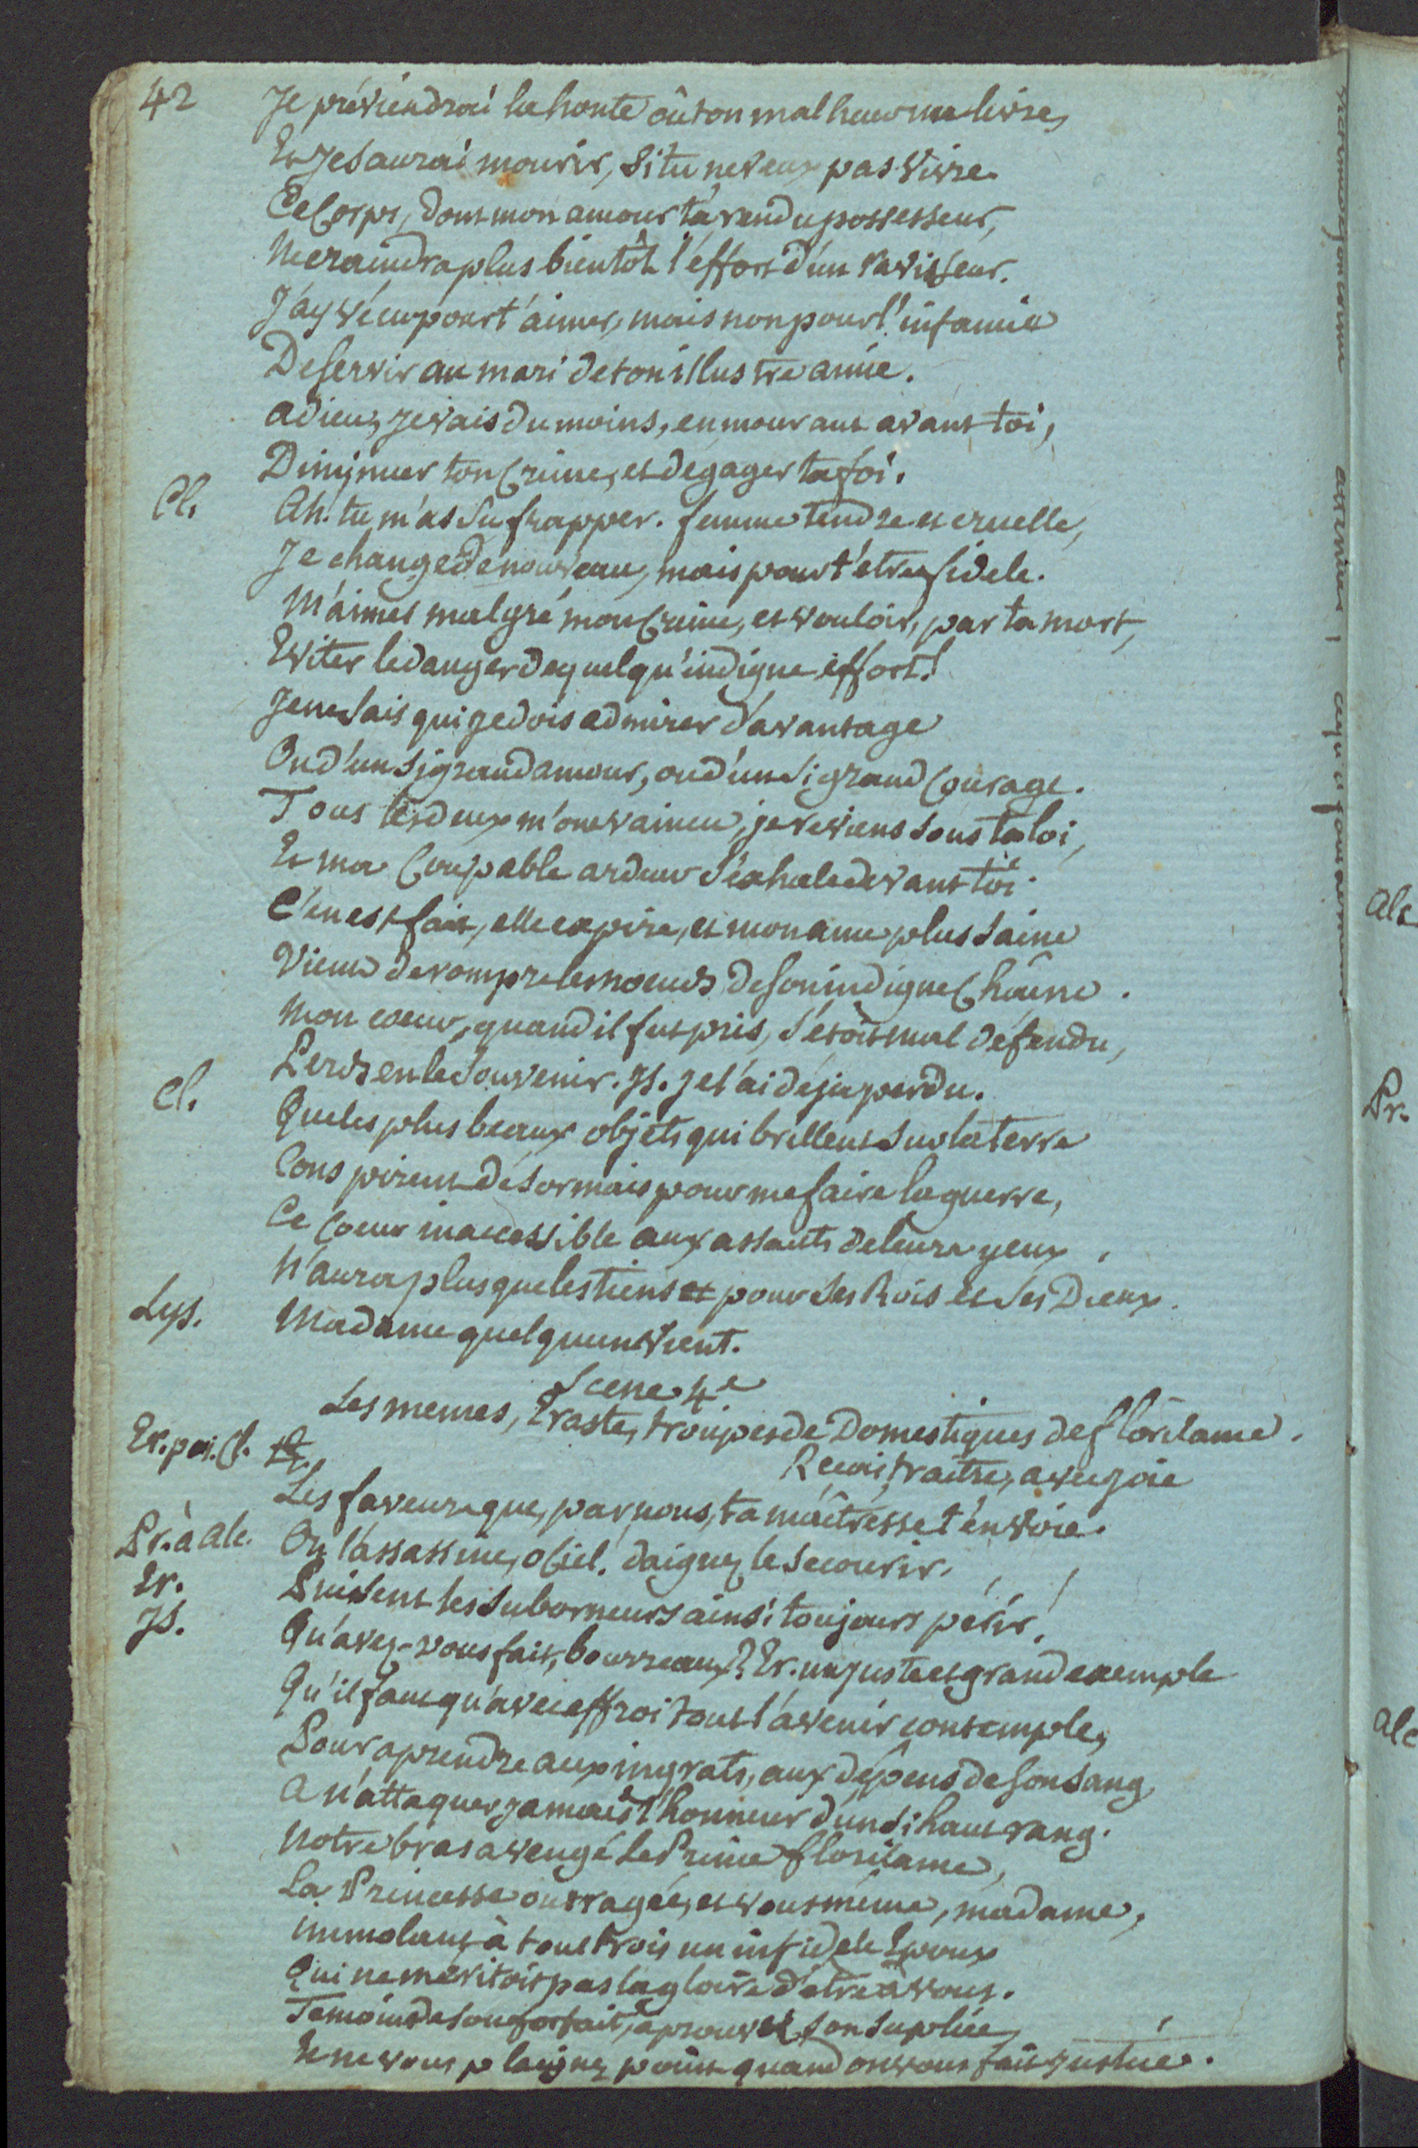 42 Je préviendrai la honte où ton malheur me livre,
Et je saurai mourir, si tu ne veux pas vivre.
Ce Corps, dont mon amour t'a rendu possesseur,
Ne craindra plus bientôt l'effort d'un ravisseur.
J'ay vécu pour t'aimer, mais non pour l'infamie
De servir au mari de ton illustre amie.
adieu, je vais du moins, en mourant avant toi,
Diminuer ton Crime, et degager ta foi.
Cl. Ah. tu m'as su frapper. femme tendre et cruelle,
Je change de nouveau, mais pour t'être fidele.
M'aimer malgré mon Crime, et vouloir, par ta mort,
Eviter le danger de quelqu'indigne effort!
Je ne sais qui je dois admirer d'avantage
Ou d'un si grand amour, ou d'un si grand Courage.
Tous les deux m'ont vaincu, je reviens sous ta loi,
Et ma Coupable ardeur s'exhale devant toi.
C'en est fait, elle expire, et mon ame plus saine
Vient de rompre les noeuds de son indigne Chaîne.
Mon coeur, quand il fut pris, s'étoit mal défendu,
Perds en le souvenir. Is. je l'ai déja perdu.
Cl. Que les plus beaux objets qui brillent sur la terre
Conspirent desormais pour me faire la guerre,
Ce Coeur inaccessible aux assauts de leurs yeux,
N'aura plus que les tiens pour ses Rois et ses Dieux.
Lys. Madame quelqu'un vient.
Scene 4e
Les memes, Eraste, troupes de Domestiques de florilame.
Er. poi. Cl. Recois, traitre, avec joie
Les faveurs que, par nous, ta maîtresse t'envoie.
Pr. à Alc. On l'assassine, o Ciel. daignez le secourir.
Er. Puissent les suborneurs ainsi toujours périr!
Is. Qu'avez-vous fait, bourreaux? Er. un juste et grand exemple
Qu'il faut qu'avec effroi tout l'avenir contemple,
Pour aprendre aux ingrats, aux dépens de son sang,
A n'attaquer jamais l'honneur d'un si haut rang.
Notre bras a vengé le Prince florilame,
La Princesse outragée, et vous même, madame,
immolant à tous trois un infidele Epoux
Qui ne méritoit pas la gloire d'etre à vous.
Temoin de son forfait, aprouvez son suplice,
Et ne vous plaignez point quand on vous fait justice.
Alc
Pr.
Alc